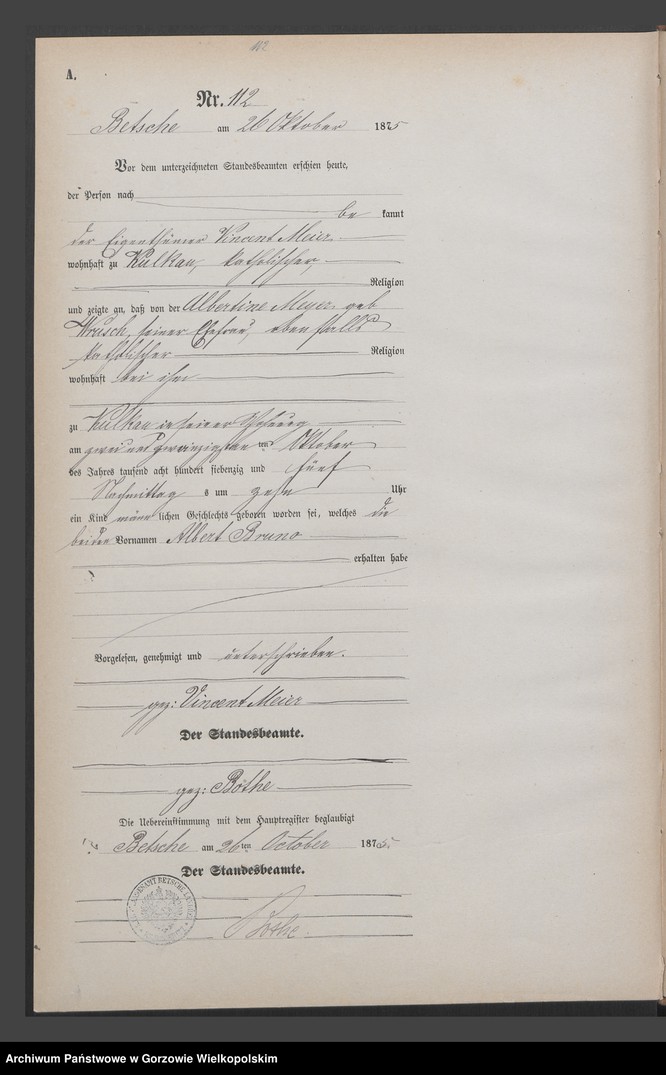 112
A.
Nr. 112
Betsche am 26 Oktober 1875
Vor dem unterzeichneten Standesbeamten erschien heute,
der Person nach
be kannt
der Eigenthümer Vincent Meier
wohnhaft zu Kulkau, katholischer,
Religion
und zeigte an, daß von der Albertine Meyer geb
Wrusch, seiner Ehefrau, ebenfalls
katholischer Religion
wohnhaft bei ihm
zu Kulkau in seiner Wohnung
am zwei und zwanzigsten ten Oktober
des Jahres tausend acht hundert siebenzig und fünf
Nachmittag s um zehn Uhr
ein Kind männ lichen Geschlechts geboren worden sei, welches die
beiden Vornamen Albert Bruno
erhalten habe
Vorgelesen, genehmigt und unterschrieben.
gez: Vincent Meier
Der Standesbeamte.
gez: Böthe
Die Uebereinstimmung mit dem Hauptregister beglaubigt
Betsche am 26 ten October 1875
Der Standesbeamte.
Böthe.
Archiwum Państwowe w Gorzowie Wielkopolskim